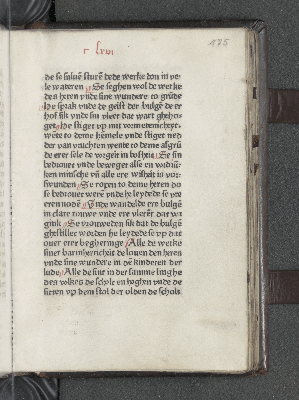 175
r lxvi
de se saluē sturē dede werke don in ve-
le wateren Se seghen wol de werke
des heren vnde sine wundere in grūde
He sprak vnde de geist der bulgē de er
hof sik vnde sin vleet dar wart ghe ho-
get He stiget vp mit
wēte to deme hēmele vnde stiget ned
der van vruchten wente to deme afgrū
de erer sele de vorgeit in bosheit Se sin
bedrouet vnde beweget alse en
ken minsche vn̄ alle ere wisheit is vor-
swunden Se ropen to deme heren do
se bedrouet werē vnde he leydede se vte
eren nodē Vnde wandelde ere bulgē
in clare rouwe vnde ere vleret dat swi
gink Se vrouweden sik dat de bulgē
ghestillet worden he leydede se vp dat
ouer erer begheringe Alle de werke
siner barmhericheit de louen den heren
vnde sine wundere in dē kinderen der
lude Alle de sint in der samme linghe
des volkes de schole en hoghen vnde de
sitten vp dem stol der olden de schole